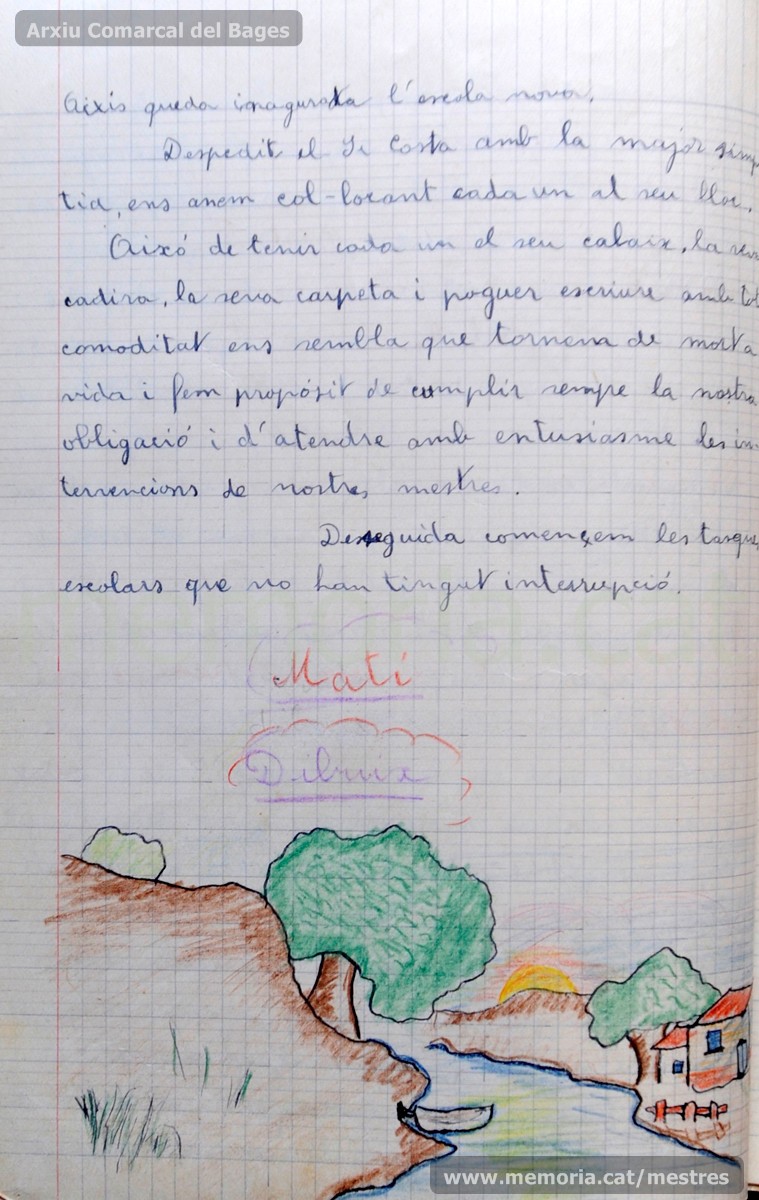 Arxiu Comarcal del Bages
Aixís queda inagurada l'escola nova.
Despedit el Sr Costa amb la major simp
tia, ens anem col-locant cada un al seu lloc.
Aixó de tenir cada un el seu calaix, la seva
cadira, la seva carpeta i poguer escriure amb tot
comoditat ens sembla que tornem de mort a
vida i fem propósit de cumplir sempre la nostra
obligació i d'atendre amb entusiasme les in
tervencions de nostres mestres.
Deseguida començem les tasques
escolars que no han tingut interrupció.
Matí
Dibuix
www.memoria.cat/mestres